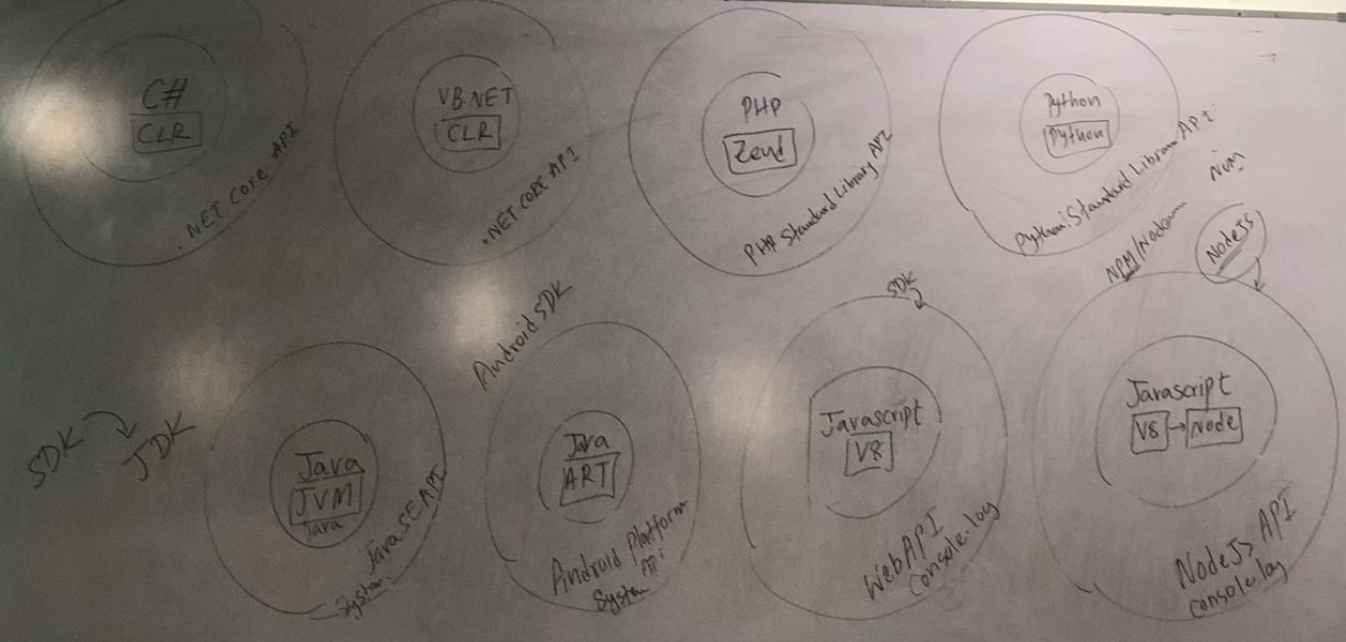 C#
CLR
.NET Core API
VB.NET
CLR
.NET CORE API
PHP
Zend
PHP Standard Library API
Python
Python
Python Standard Library API
NVM
NPM/Nodemon
NodeJs
SDK
JDK
Java
JVM
Java
Java SE API
System.
Android SDK
Java
ART
Android Platform
API
System
SDK
Javascript
V8
WebAPI
Console.log
Javascript
V8 → Node
NodeJs API
console.log